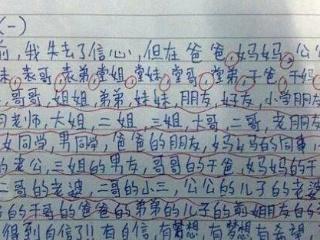 (一)
前,我失去了信心,但在爸爸,妈妈,公公
妹,表哥,表弟,堂姐,堂妹,堂哥,堂弟,干爸,干妈
,哥哥,姐姐,弟弟,妹妹,朋友,好友,小学朋友
同老师,大姐,二姐,三姐,大哥,二哥,老朋友
女同学,男同学,爸爸的朋友,妈妈的同事,
的老公,三姐的男友,哥哥的干爸,妈妈的干
二哥的老婆,二哥的小三,公公的儿子的老婆
的干哥的爸爸的弟弟的儿子的前姐朋友的
得到自信了!!有自信,有梦想,有梦想有希望